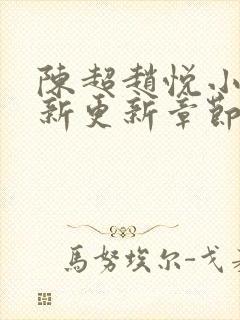 陳超趙悅小
新更新章節
馬努埃尔-戈